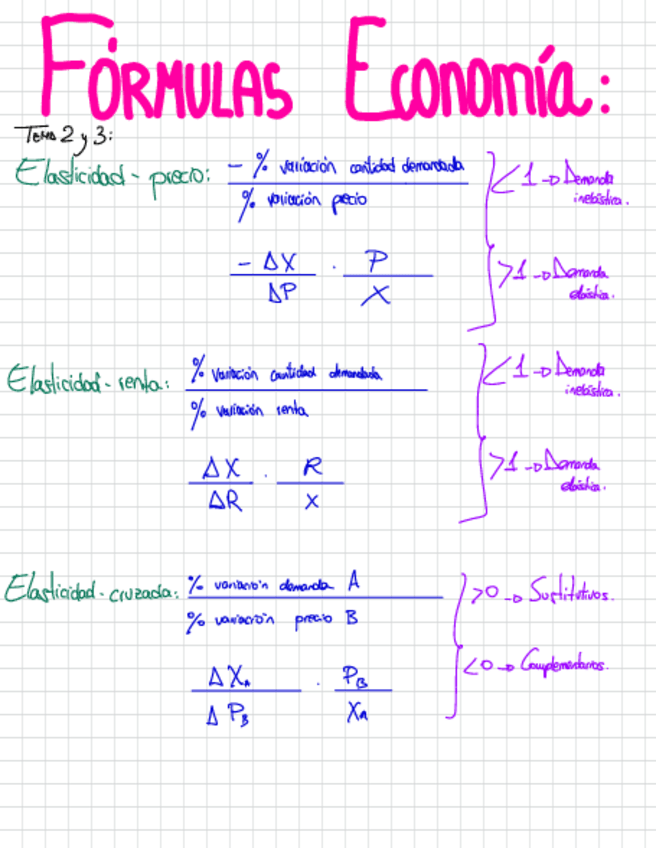 FÓRMULAS Economía:
Tema 2 y 3:
Elasticidad - precio: - % variación cantidad demandada
% variación precio
< 1 → Demanda
inelástica.
- ΔX / ΔP · P / X
> 1 → Demanda
elástica.
Elasticidad - renta: % variación cantidad demandada
% variación renta
< 1 → Demanda
inelástica.
ΔX / ΔR · R / X
> 1 → Demanda
elástica.
Elasticidad - cruzada: % variación demanda A
% variación precio B
> 0 → Sustitutivos.
< 0 → Complementarios.
ΔX_A / ΔP_B · P_B / X_A